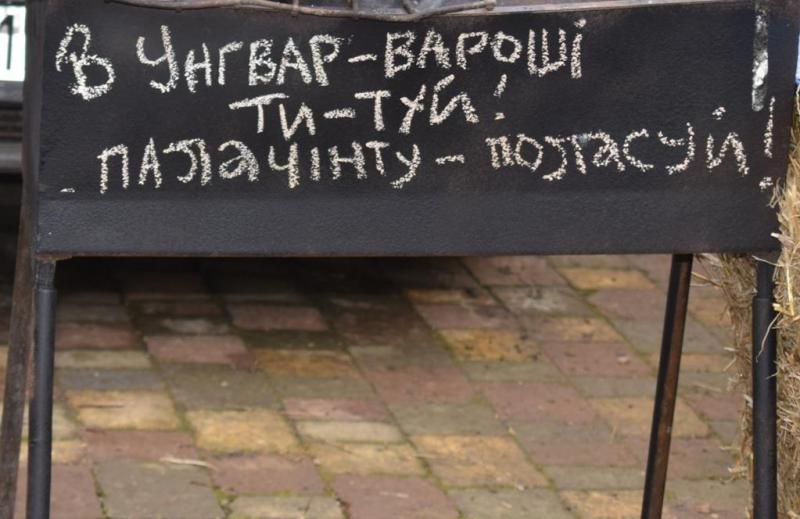 В УНГВАР-ВАРОШІ
ТИ-ТУЙ!
ПАЛАЧІНТУ - ПОЛАСУЙ!